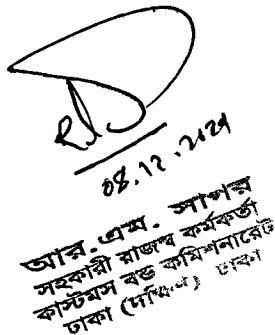 08.12.2021
আর.এম. সাগর
সহকারী রাজস্ব কর্মকর্তা
কাস্টমস বন্ড কমিশনারেট
ঢাকা (দক্ষিণ) ঢাকা